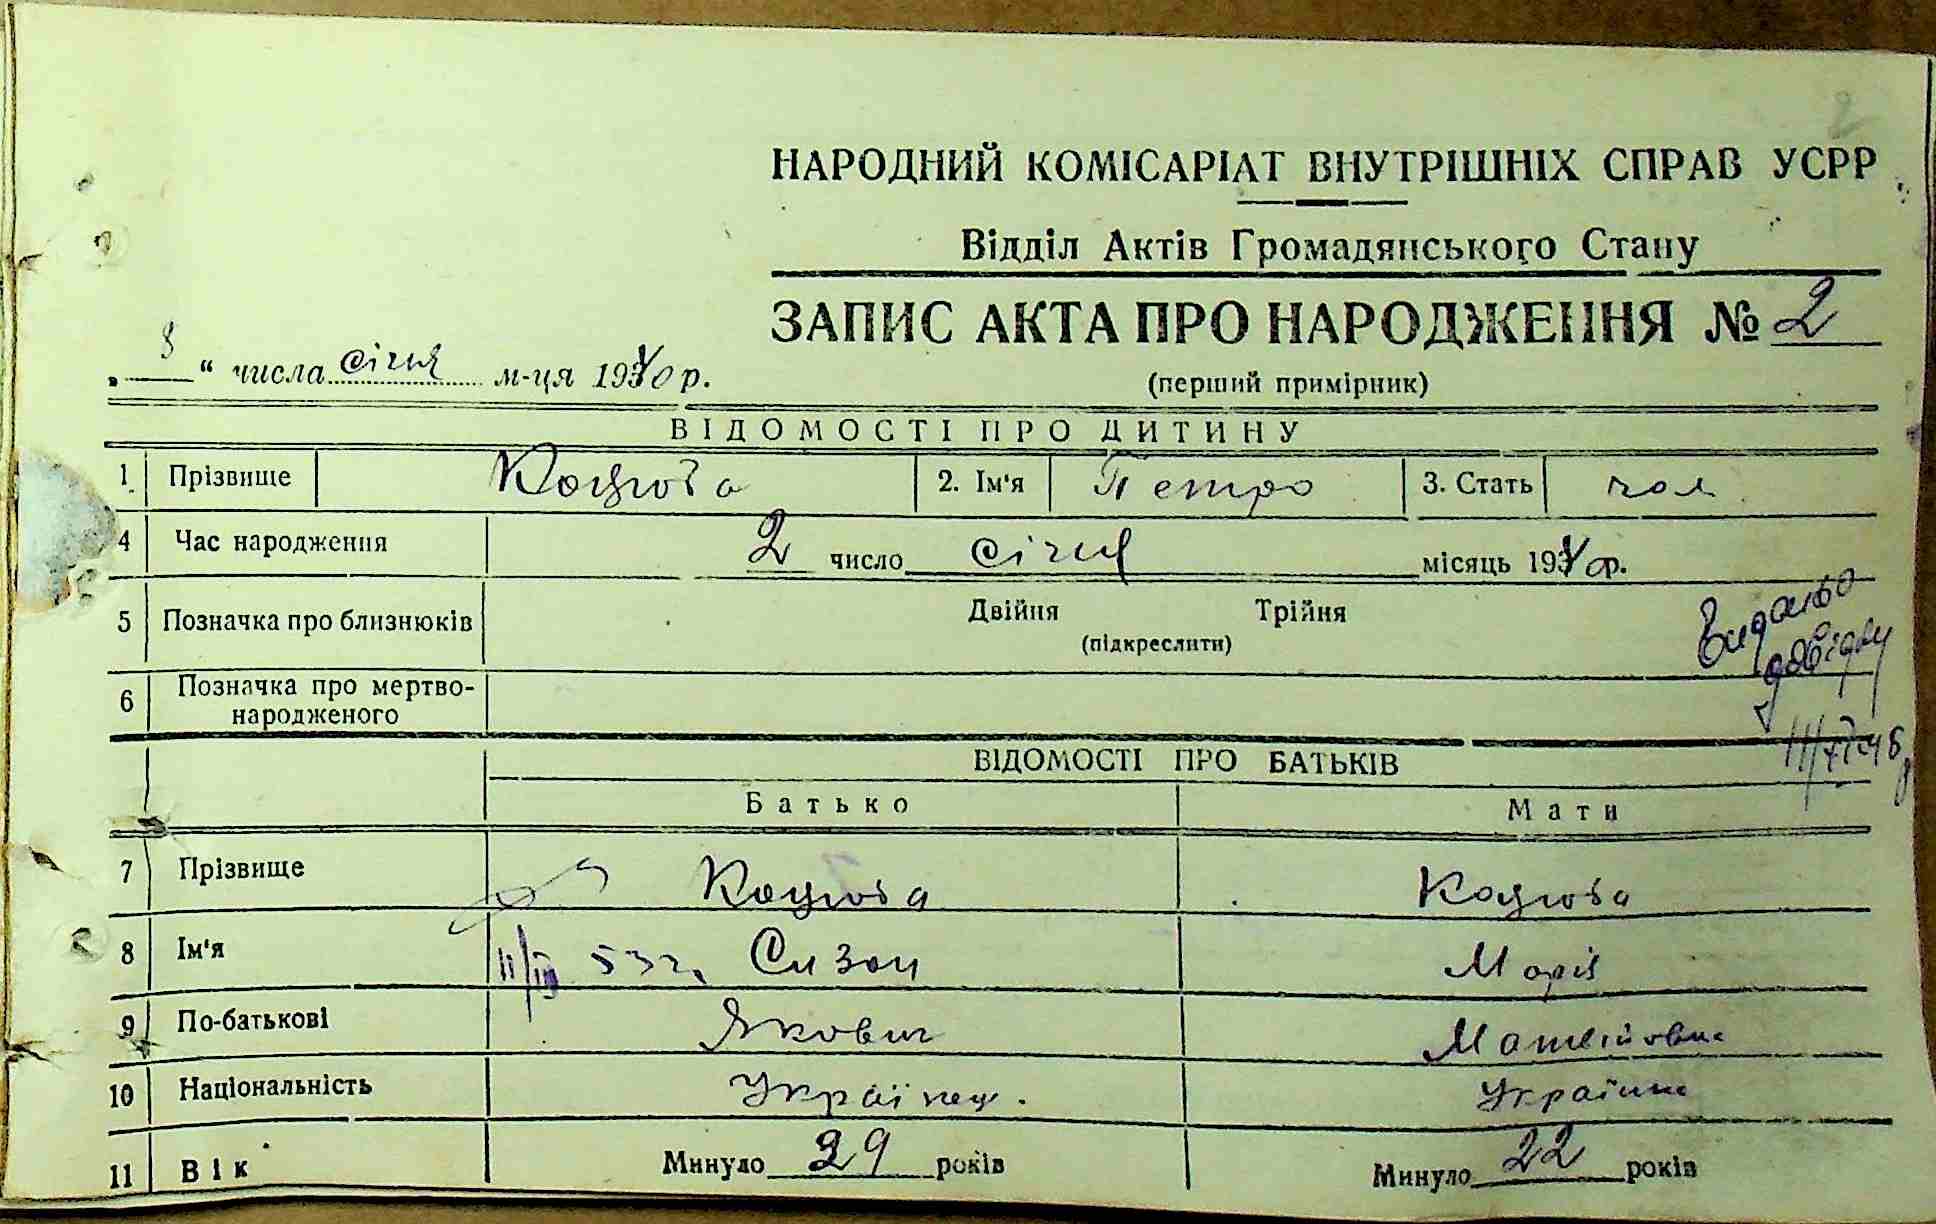 2
НАРОДНИЙ КОМІСАРІАТ ВНУТРІШНІХ СПРАВ УСРР
Відділ Актів Громадянського Стану
ЗАПИС АКТА ПРО НАРОДЖЕННЯ № 2
„ 8 “ числа січня м-ця 1940 р.
(перший примірник)
ВІДОМОСТІ ПРО ДИТИНУ
1 Прізвище Коцюба 2. Ім'я Петро 3. Стать чол
4 Час народження 2 число січня місяць 1940 р.
5 Позначка про близнюків Двійня Трійня
(підкреслити)
Видано
довідку
6 Позначка про мертво-
народженого
ВІДОМОСТІ ПРО БАТЬКІВ
Батько Мати
7 Прізвище Коцюба Коцюба
8 Ім'я Сизон Марія
9 По-батькові Якович Матвіївна
10 Національність Українец. Українка
11 Вік Минуло 29 років Минуло 22 років